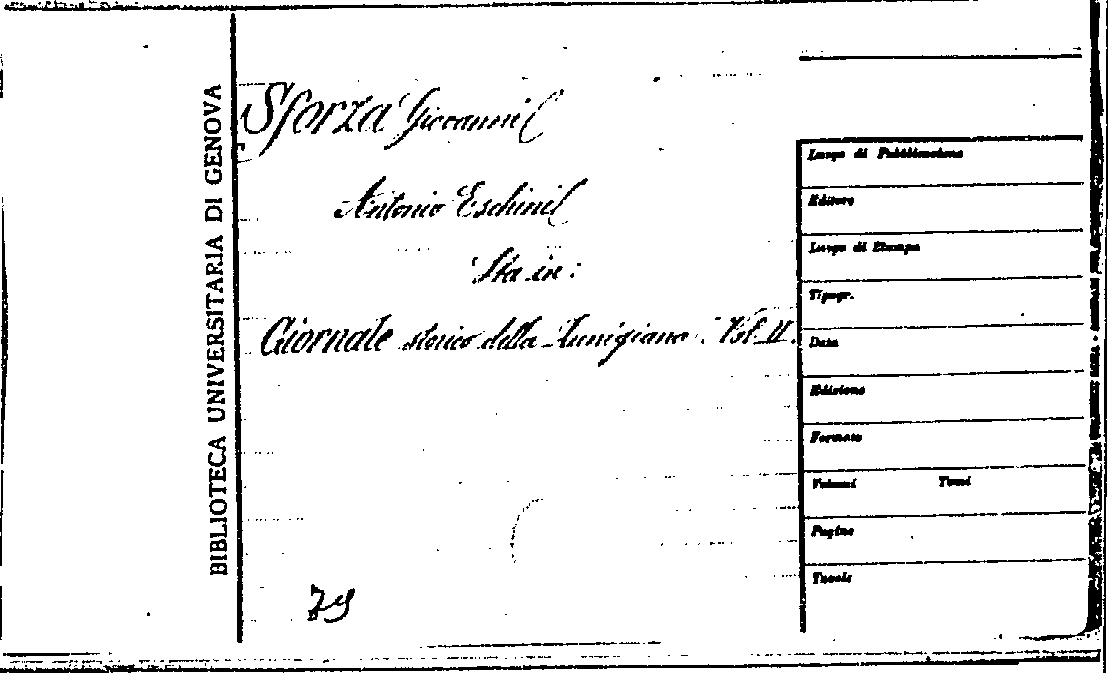 BIBLIOTECA UNIVERSITARIA DI GENOVA
Sforza Giovanni
Antonio Eschini
Sta in:
Giornale storico della Lunigiana. Vol. II.
79
Luogo di Pubblicazione
Editore
Luogo di Stampa
Tipogr.
Data
Edizione
Formato
Volumi Tomi
Pagine
Tavole